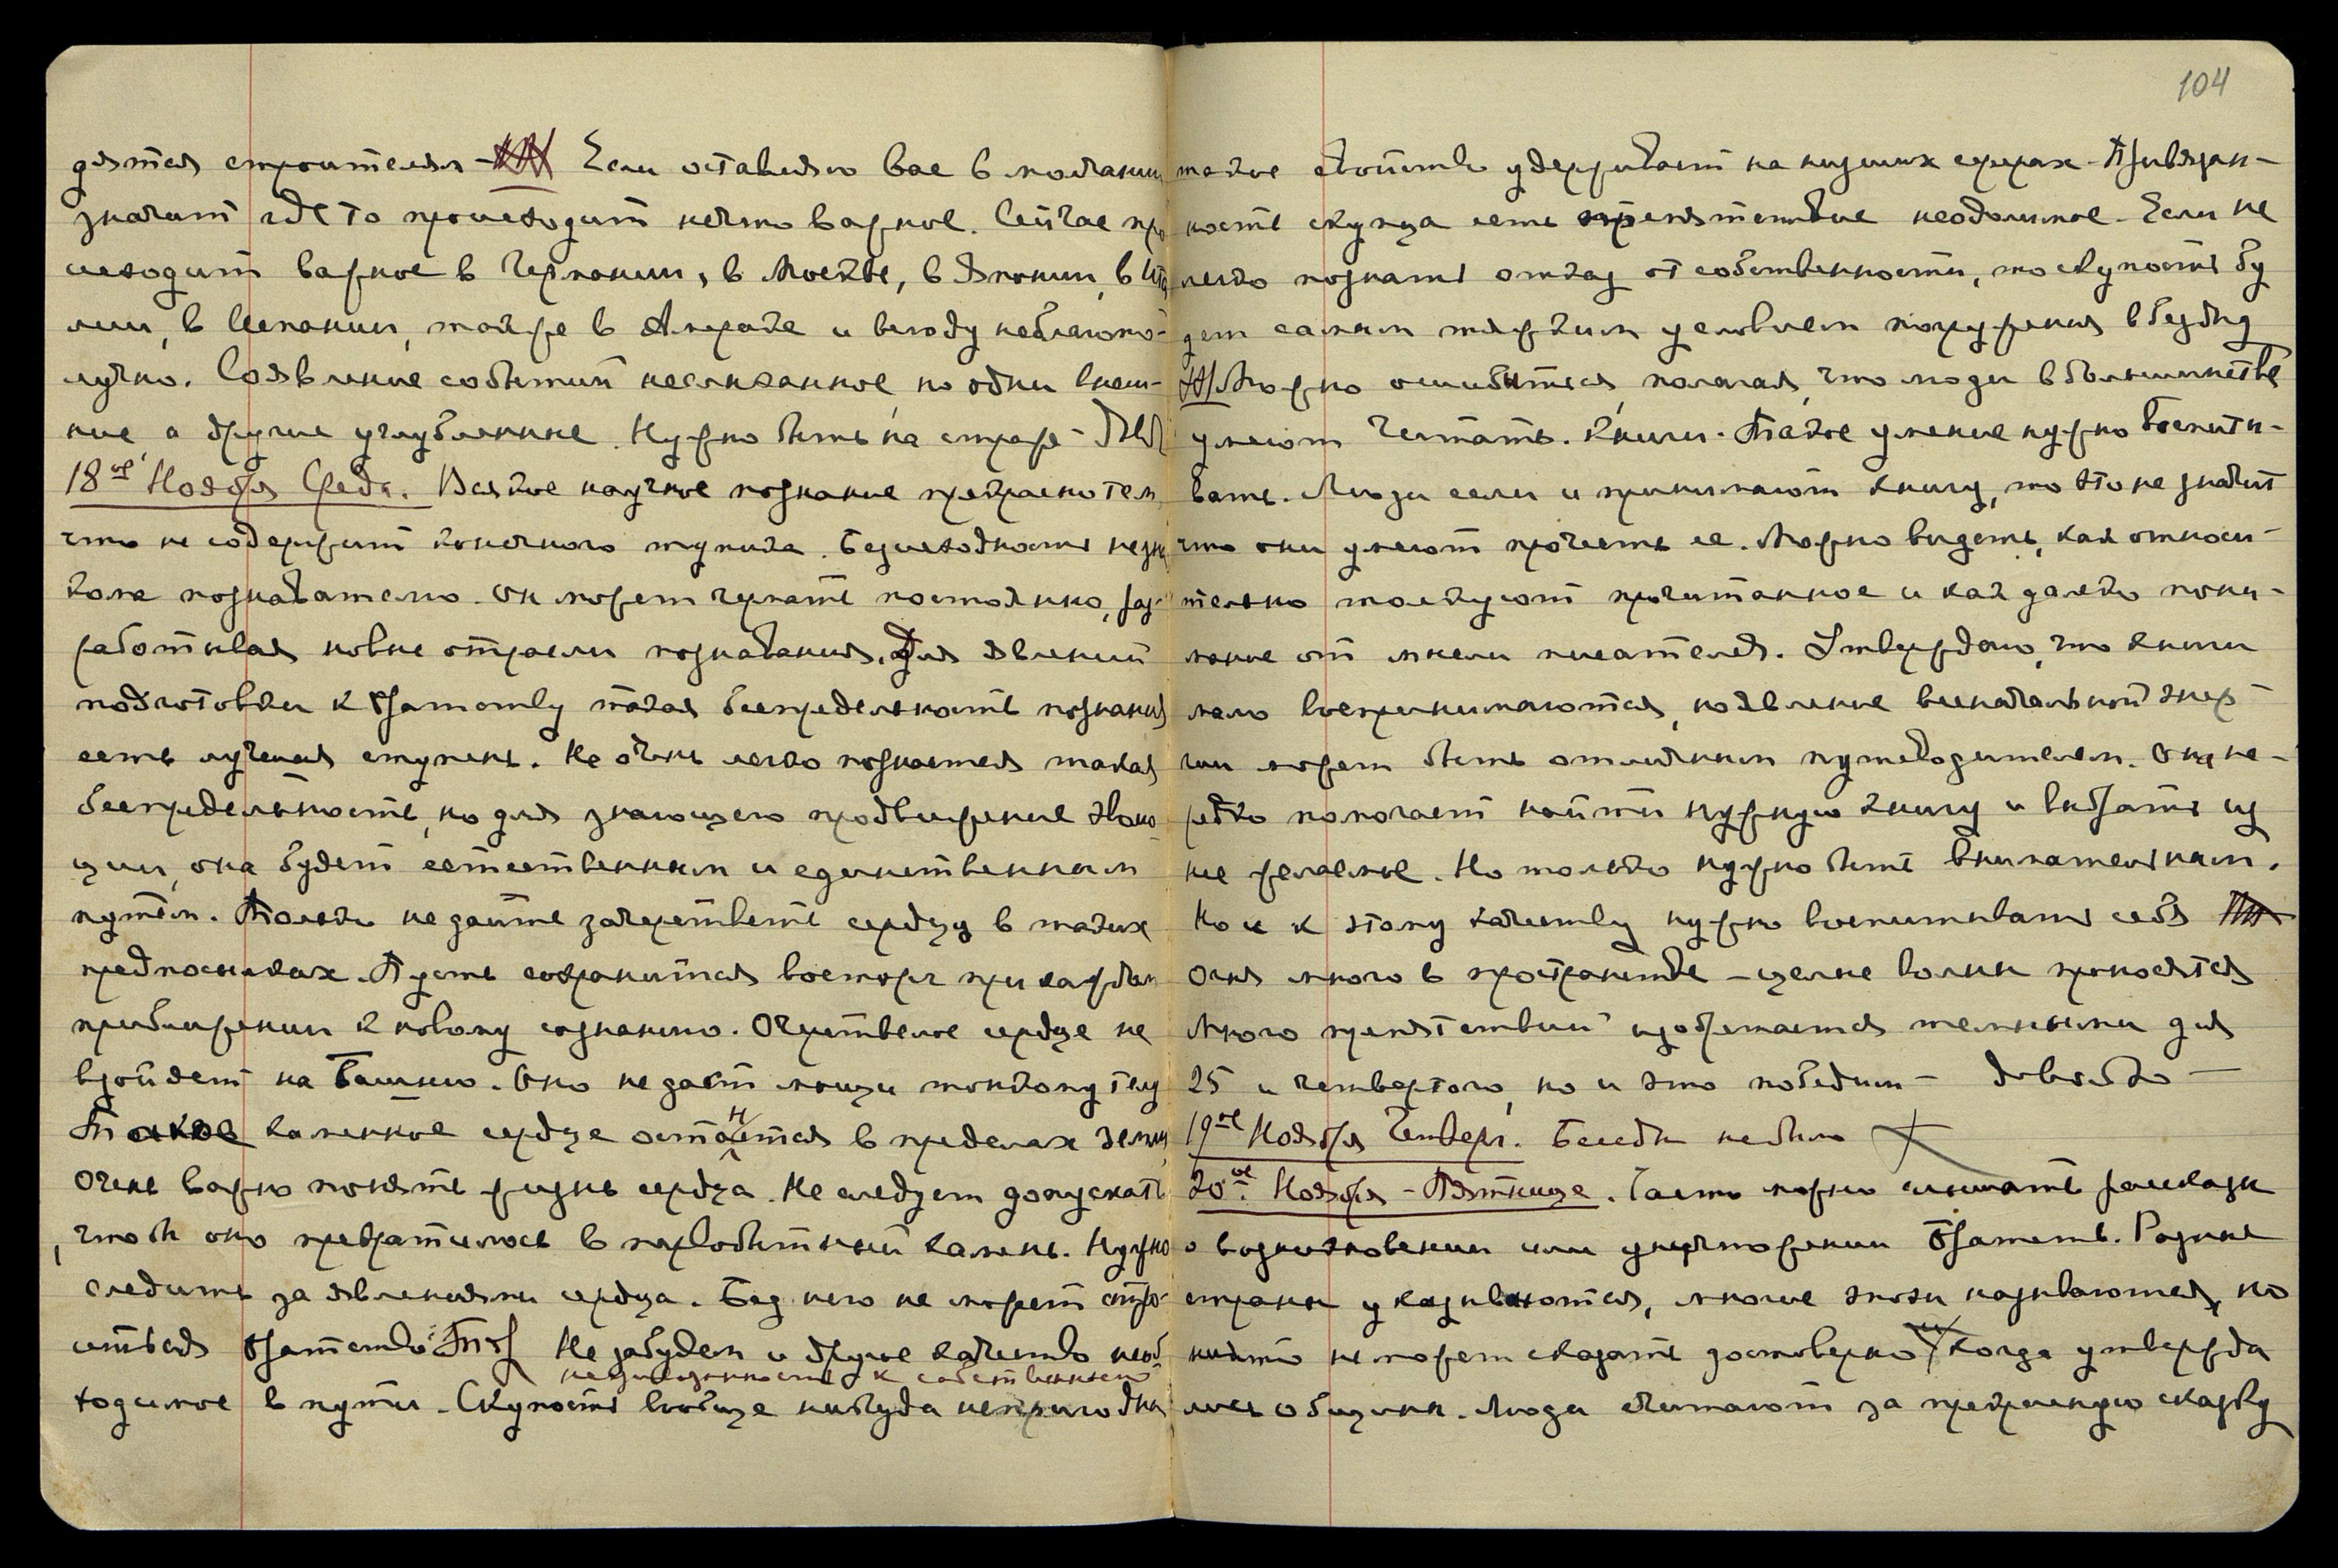 дятся строителям -
Если оставляю вас в молчании
значит где то происходит нечто важное. Сейчас про
исходит важное в Германии, в Москве, в Японии, в Ита
лии, в Испании, также в Америке и всюду неблагопо-
лучно. Появление событий несказанное но одни внеш-
ние, а другие углубленные. Нужно быть на страже -
18ое Ноября Среда. Всякое научное познание прекрасно тем
что не содержит конечного тупика. Безысходность незна
кома познавателю. Он может черпать постоянно, раз-
работывая новые отрасли познавания. Для явлений
подготовки к Братству такая беспредельность познания
есть лучшая ступень. Не очень легко познается такая
беспредельность, но для знающего продвижение эволю
ции, она будет естественным и единственным
путем. Только не дайте зачерстветь сердцу в таких
предпосылках. Пусть сохранится восторг при каждом
приближении к новому сознанию. Очерствелое сердце не
взойдет на Башню. Оно не даст мощи тонкому телу
Такое каменное сердце останется в пределах земли
Очень важно понять жизнь сердца. Не следует допускать
, чтобы оно превратилось в первобытный камень. Нужно
следить за явлениями сердца. Без него не может стро-
иться Братство
Не забудем и другое качество необ
непривязанность к собственности
ходимое в пути. Скупость вообще никуда непригодна
104
такое свойство удерживает на низших сферах. Привязан-
ность скупца есть препятствие неодолимое. Если не
легко познать отказ от собственности, то скупость бу
дет самым тяжким условием погружения в бездну
Можно ошибиться, полагая, что люди в большинстве
умеют читать. Книги. Такое умение нужно воспиты-
вать. Люди если и принимают книгу, то это не значит
что они умеют прочесть ее. Можно видеть, как относи-
тельно толкуют прочитанное и как далеко пони-
мание от мысли писателя. Утверждаю, что книги
мало воспринимаются, но явление всеначальной энер-
гии может быть отличным путеводителем. Она не-
редко помогает найти нужную книгу и выбрать из
нее желаемое. Но только нужно быть внимательным.
Но и к этому качеству нужно воспитывать себя
Огня много в пространстве - целые волны проносятся
Много препятствий изобретается темными для
25 и четвертого, но и это победим - довольно -
19ое Ноября Четверг. Беседы не было
20ое Ноября - Пятница. Часто можно слышать рассказы
о возникновении или уничтожении Братств. Разные
страны указываются, многие эпохи называются, но
никто не может сказать достоверно когда утвержда
лись общины. Люди считают за прекрасную сказку